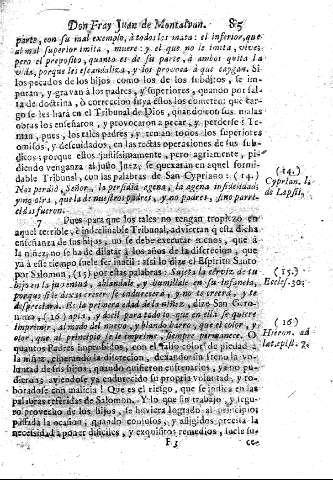 Don Fray Juan de Montalvan. 85
parte, con su mal exemplo, à todos los mata: el inferior, que
al mal superior imita, muere: y el que no le imita, vive;
pero el preposito, quanto es de su parte, à ambos quita la
vida, porque les escandaliza, y los provoca à que caygan. Si
los pecados de los hijos como los de los subditos, se im-
putan, y gravan à los padres, y superiores, quando por fal-
ta de doctrina, ò correccion suya ellos los cometen: que car-
go se les harà en el Tribunal de Dios, quando con sus malas
obras los enseñaron, y provocaron à pecar, y perderse? Te-
man, pues, los tales padres, y teman todos los superiores
omisos, y descuidados, en las rectas operaciones de sus sub-
ditos: porque ellos justissimamente, pero agriamente, pi-
diendo venganza al justo Juez, se quexaràn en aquel formi-
dable Tribunal, con las palabras de San Cypriano: (14.)
Nos perdiò, Señor, la perfidia agena, la agena infidelidad;
y no otra, que la de nuestros padres, y no padres, sino parri-
cidas fueron.
(14.)
Cyprian. l.
de Lapsis.
7 Pues para que los tales no tengan tropiezo en
aquel terrible, è indeclinable Tribunal, adviertan que esta dicha
enseñanza de sus hijos, no se debe executar en canos, que à
la niñez, no se ha de dilatar à los años de la discrecion, que
ya à esse tiempo suele ser inutil: assi lo dice el Espiritu Santo
por Salomon, (15.) por estas palabras: Sujeta la cerviz de su
hijo en la juventud, ablandale, y humillale en su infancia,
porque si le dexas crecer se endurecerà, y no te creerà, y te
despreciarà. Es la primera edad de la niñez, dize San Gero-
nimo, (16.) apta, y docil para todo lo que en ella se quiere
imprimir, al modo del nuevo, y blando barro, que el color, y
olor, que al principio se le imprime, siempre permanece. O
quantos Padres imprudentes, con el falso color de piedad à
la niñez, esperando la discrecion, dexando sin freno la vo-
luntad de sus hijos, quando quisieron enfrenarlos, ya no pu-
dieron; aviendose ya endurecido su propria voluntad, y ro-
borandose con malicia! Que es el riesgo, que se indica en las
palabras referidas de Salomon. Y lo que sin trabajo, y segu-
ro provecho de los hijos, se huviera logrado al principio;
passada la ocasion, quando conjuros, y afligidos, precisa la
necessidad à poner dificiles, y exquisitos remedios, suele sus
(15.)
Eccles. 30.
(16)
Hieron. ad
Lat. epist. 7.
F 3